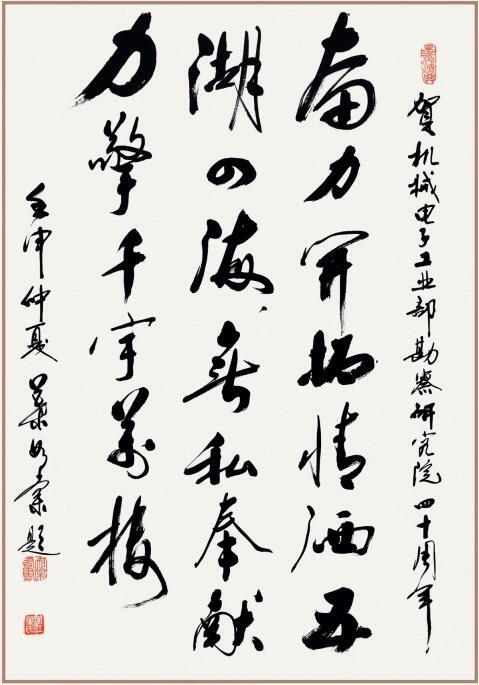 贺机械电子工业部勘察研究院四十周年
奋力开拓情洒五
湖四海无私奉献
力擎千宇万楼
壬申仲夏 叶如棠题